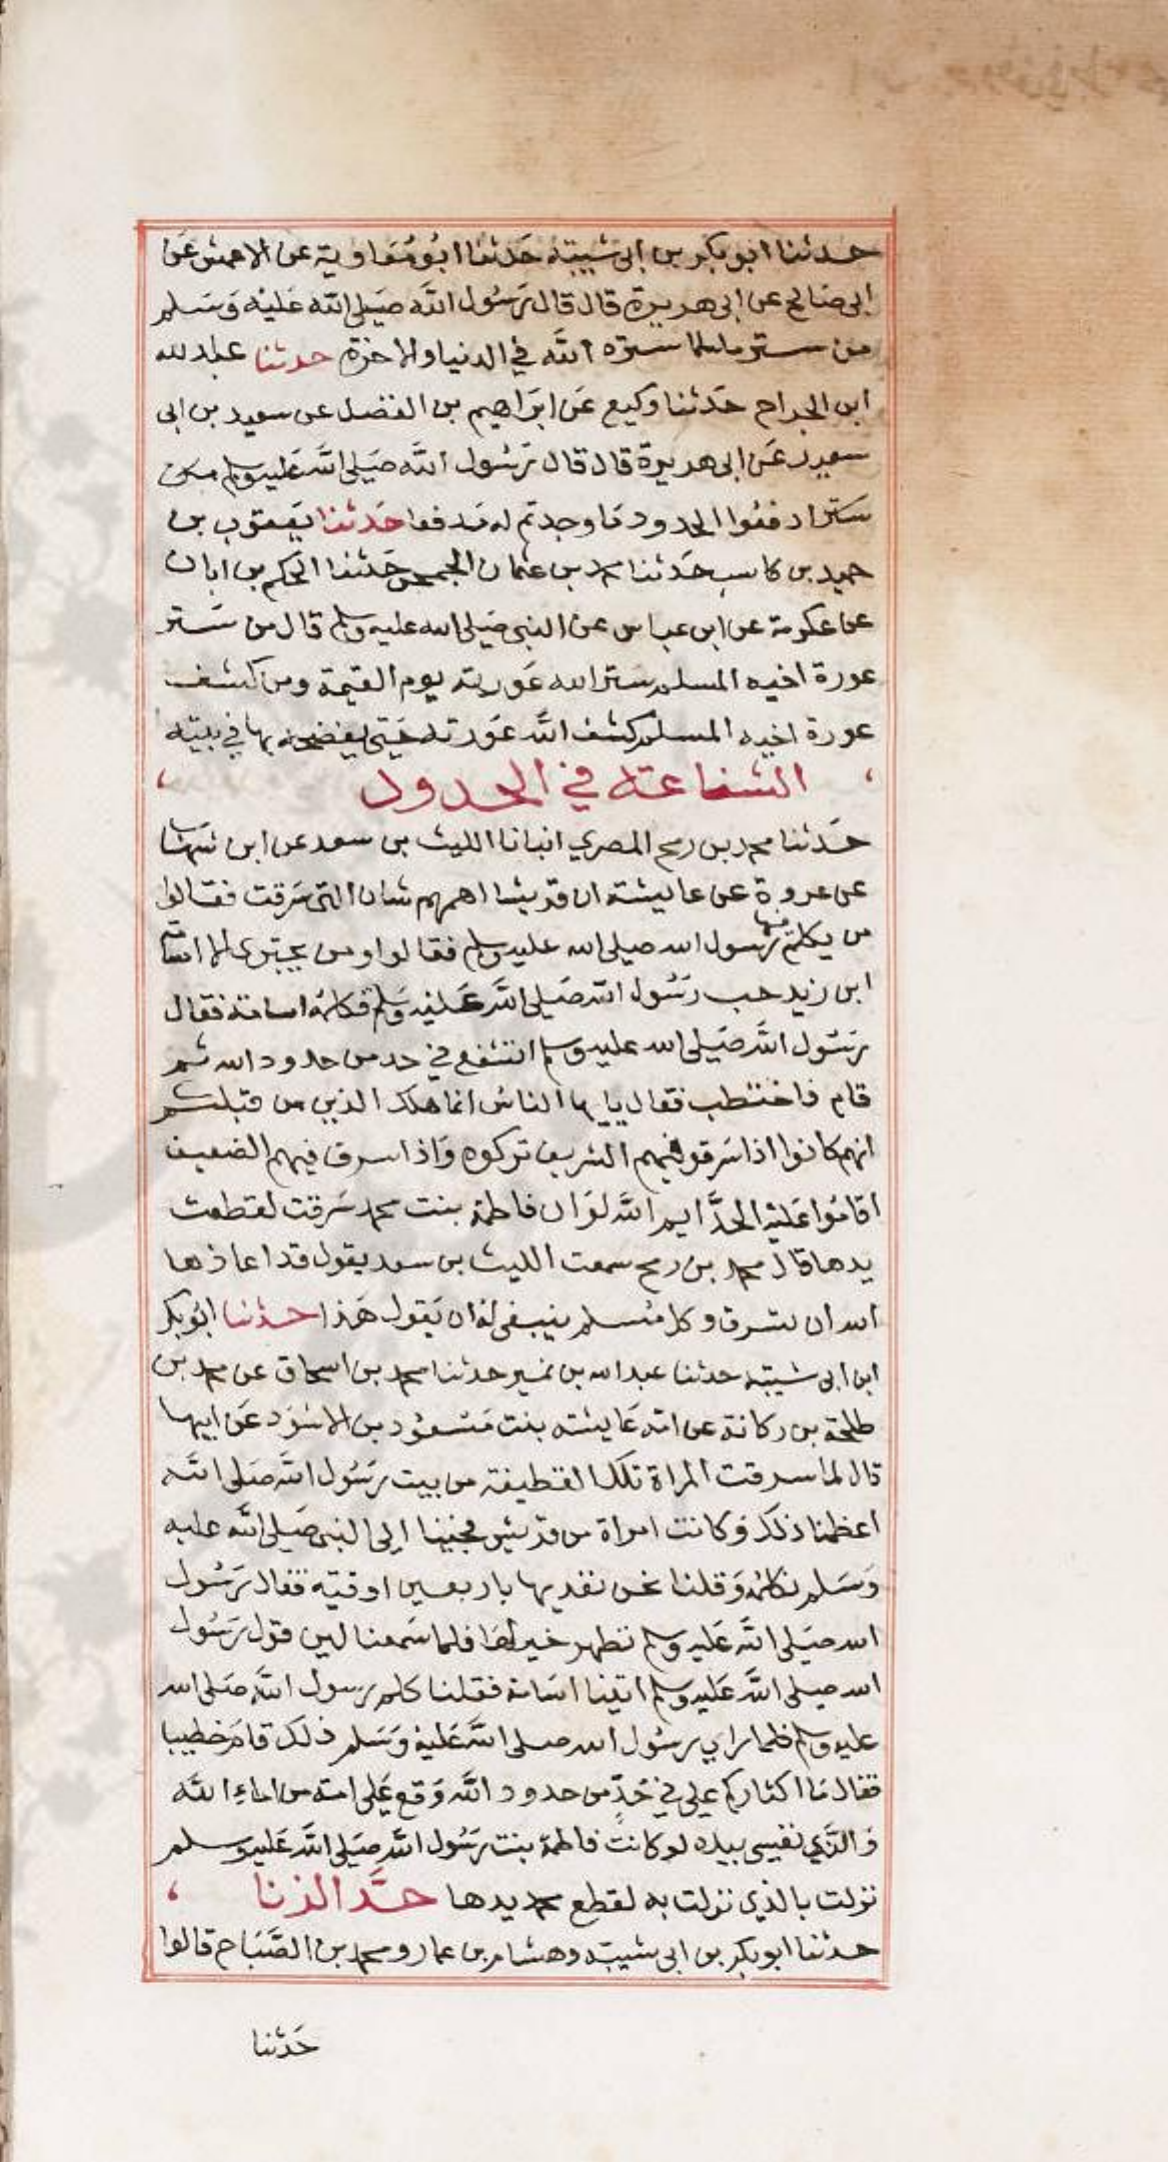 حدثنا ابو بكر بن ابى شيبة حَدثنا ابُو مُعَاوية عن الاعمش عَن
ابى صَالح عن ابى هريرة قال قال رَسُول الله صَلى الله عَليْه وَسَلم
من ستر مسلما ستره الله في الدنيا والاخرة حدثنا عبد الله
ابن الجراح حَدثنا وكيع عَن ابرَاهيم بن الفضل عن سعيد بن ابى
سعيد عَن ابى هريرة قال قال رَسُول الله صَلى الله عَليه وسلم من
ستر ادفعُوا الحدود مَا وجدتم له مَدفعا حَدثنا يَعقوب بن
حميد بن كاسب حَدثنا محمد بن عثمان الجمحي حَدثنا الحكم بن ابان
عن عكرمة عن ابن عباس عن النبي صَلى الله عليه وسلم قال من سَتر
عورة اخيه المسلم ستر الله عَورته يوم القيمة ومن كشف
عورة اخيه المسلم كشف الله عَورته حَتى يفضحه بها في بيته
الشفاعة في الحدود
حَدثنا محمد بن رمح المصري انبانا الليث بن سعد عن ابن شهَاب
عن عروة عن عايشة ان قريشا اهمهم شان التي سَرقت فقالوا
من يكلم فيها رسول الله صَلى الله عليه وسلم فقالوا ومن يجترى الا اسامة
ابن زيد حب رَسُول الله صَلى الله عَليْه وَسَلم فكلمهُ اسامة فقال
رَسُول الله صَلى الله عليه وسلم اتشفع في حد من حدود الله ثم
قام فاختطب فقال يايها الناسُ انما هلك الذين من قبلكم
انهم كانوا اذا سَرقو فيهم الشريف تركوه وَاذا سرق فيهم الضعيف
اقامُوا عَليْه الحدَّ ايم الله لوَ ان فاطمة بنت محمد سَرقت لقطعت
يدها قال محمد بن رمح سمعت الليث بن سعد يقول قد اعاذها
الله ان تسرق وكل مُسلم ينبغى لهُ ان يَقول هَذا حدثنا ابُو بكر
ابن ابى شيبة حدثنا عبد الله بن نمير حدثنا محمد بن اسحاق عن محمد بن
طلحة بن ركانة عن امه عَايشه بنت مَسْعوُد بن الاسْوَد عَن ابيها
قال لما سرقت المراة تلك القطيفة من بيت رَسُول الله صَلى الله
اعظمنا ذلك وَكانت امراة من قريش فجينا الى النبي صَلى الله عليه
وَسَلم نكلمهُ وَقلنا نحن نفديها باربعين اوقية فقال رَسُول
الله صَلى الله عَليه وسلم تطهر خير لهَا فلما سَمعنا لين قول رَسُول
الله صلى الله عَليه وسلم اتينا اسَامة فقلنا كلم رسول الله صَلى الله
عليه وسلم فلما راي رسُول الله صلى الله عَليْه وَسَلم ذلك قامَ خطيبا
فقال مَا اكثاركم علي في حَدٍّ من حدود الله وَقع عَلى امة من اماء الله
وَالذَّي نفسي بيده لو كانت فاطمة بنت رَسُول الله صَلى الله عَليه وسلم
نزلت بالذي نزلت به لقطع محمد يدها حَدَّ الزنا
حدثنا ابو بكر بن ابى شيبة وهشام بن عمار ومحمد بن الصَّبَاح قالوا
حَدثنا